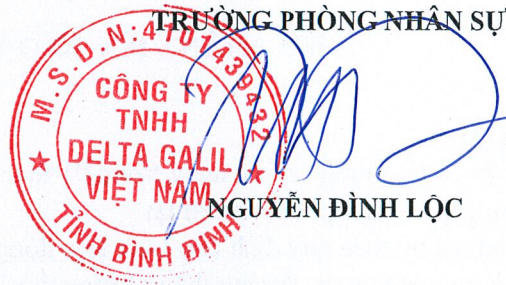 TRƯỞNG PHÒNG NHÂN SỰ
M.S.D.N:4101439432
CÔNG TY
TNHH
DELTA GALIL
VIỆT NAM
TỈNH BÌNH ĐỊNH
NGUYỄN ĐÌNH LỘC